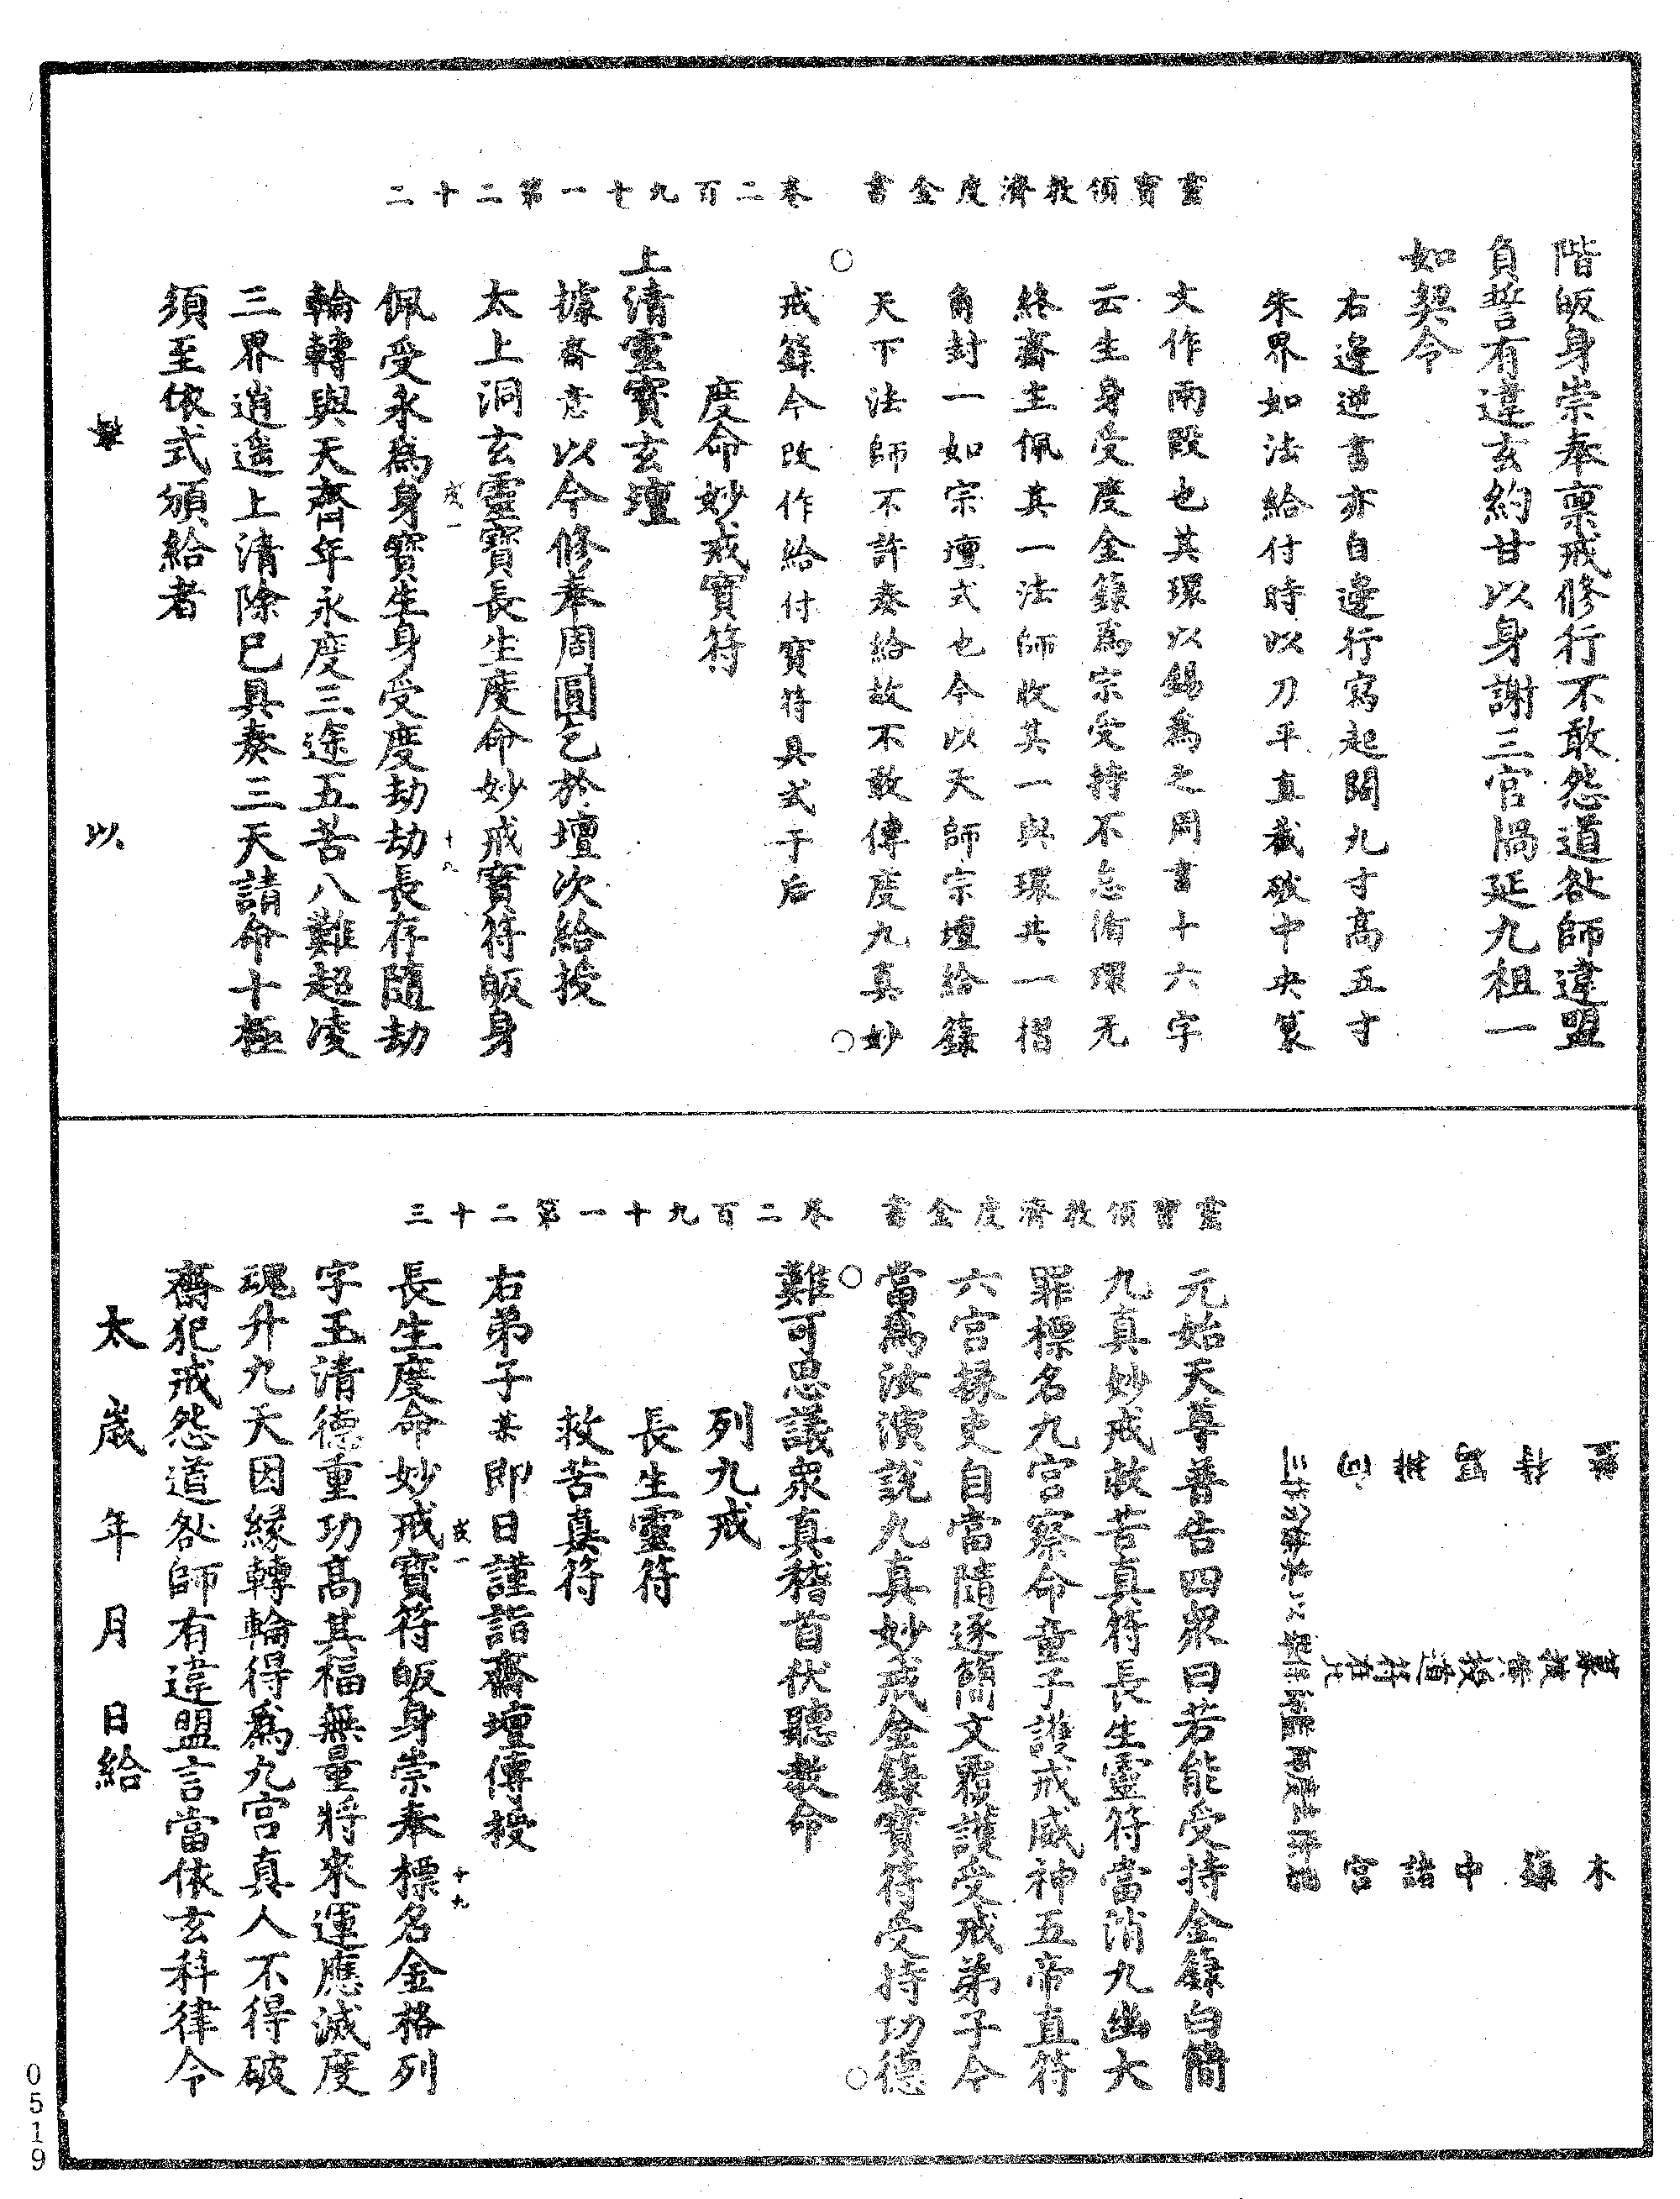 靈寶領教濟度金書　卷二百九十一第二十二
階皈身崇奉稟戒修行不敢怨道咎師違盟
負誓有違玄約甘以身謝三官禍延九祖一
如契令
右邊逆書亦自邊行寫起闊九寸高五寸
朱界如法給付時以刀平直截破中央篆
文作兩段也其環以錫為之周書十六字
云生身受度金籙為宗受持不怠佩環无
終齋主佩其一法師收其一與環共一摺
角封一如宗壇式也今以天師宗壇給籙
天下法師不許奏給故不敢傳度九真妙
戒籙今改作給付寶符具式于后
度命妙戒寶符
上清靈寶玄壇
據齋意以今修奉周圓乞於壇次給授
太上洞玄靈寶長生度命妙戒寶符皈身
佩受永為身寶生身受度劫劫長存隨劫
輪轉與天齊年永度三途五苦八難超凌
三界逍遥上清除已具奏三天請命十極
須至依式頒給者
以
靈寶領教濟度金書　卷二百九十一第二十三
元始天尊普告四眾曰若能受持金籙白簡
九真妙戒救苦真符長生靈符當消九幽大
罪標名九宮察命童子護戒威神五帝直符
六宮掾吏自當隨逐簡文覆護受戒弟子今
當為汝演說九真妙戒金籙寶符受持功德
難可思議眾真稽首伏聽教命
列九戒
長生靈符
救苦真符
右弟子某即日謹詣齋壇傳授
長生度命妙戒寶符皈身崇奉標名金格列
字玉清德重功高其福無量將來運應滅度
魂升九天因緣轉輪得為九宮真人不得破
齋犯戒怨道咎師有違盟言當依玄科律令
太歲年月日給
0519